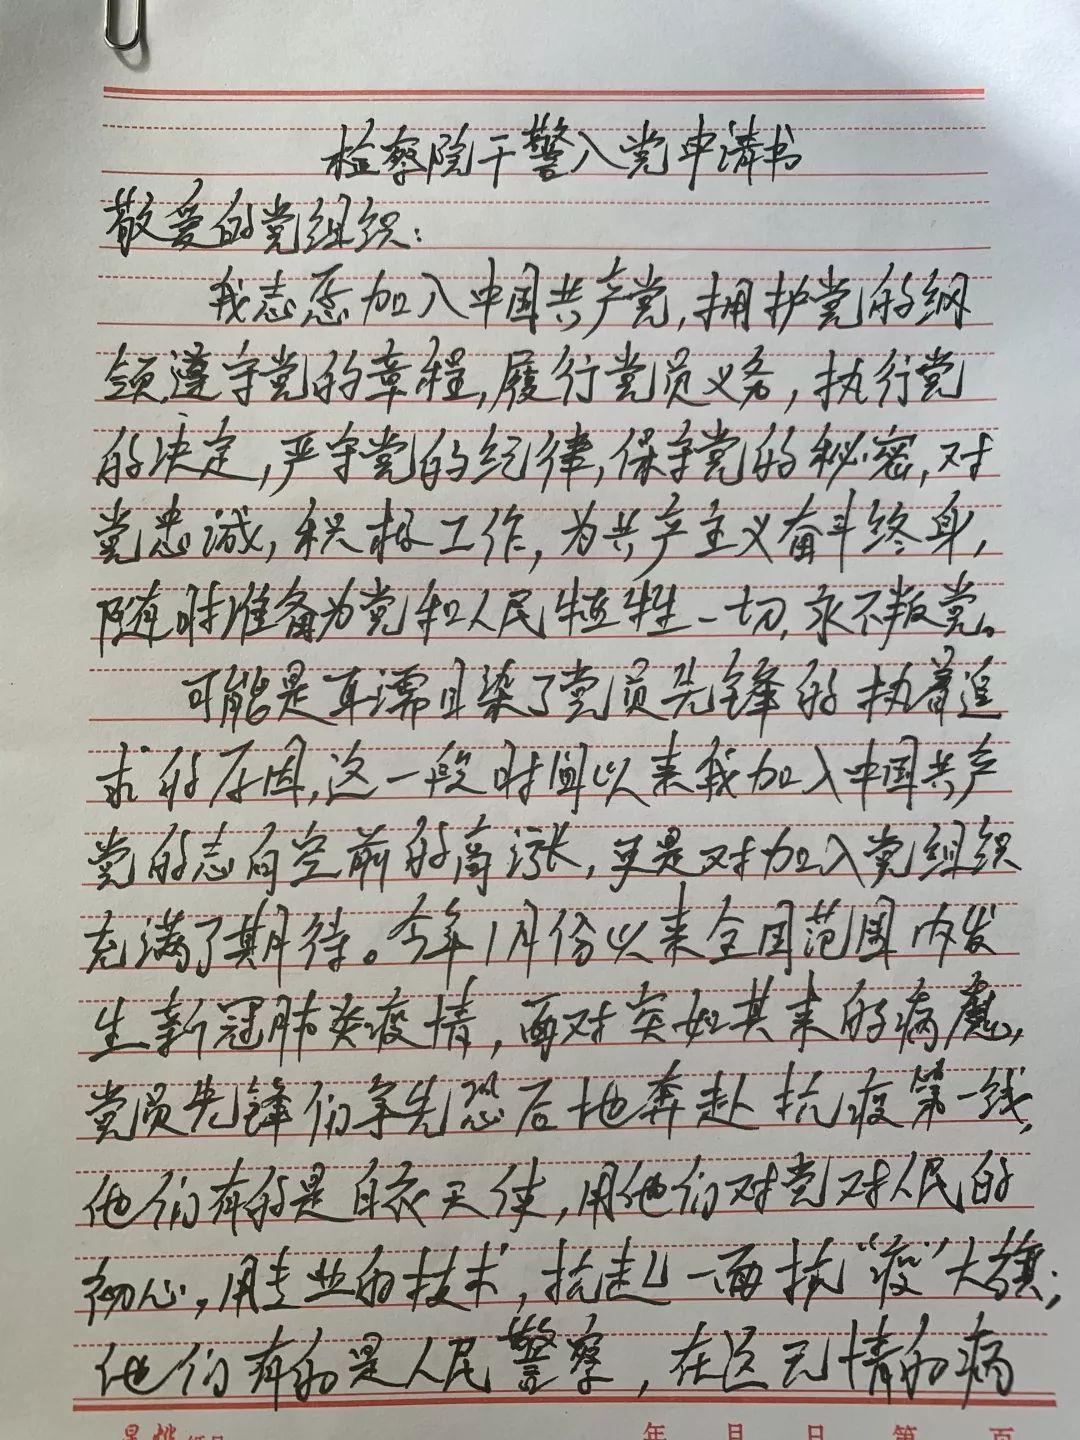 检察院干警入党申请书
敬爱的党组织：
我志愿加入中国共产党，拥护党的纲
领，遵守党的章程，履行党员义务，执行党
的决定，严守党的纪律，保守党的秘密，对
党忠诚，积极工作，为共产主义奋斗终身，
随时准备为党和人民牺牲一切，永不叛党。
可能是耳濡目染了党员先锋的执着追
求的原因，这一段时间以来我加入中国共产
党的志向空前的高涨，更是对加入党组织
充满了期待。今年1月份以来全国范围内发
生新冠肺炎疫情，面对突如其来的病魔，
党员先锋们争先恐后地奔赴抗疫第一线，
他们有的是白衣天使，用他们对党对人民的
初心，用专业的技术，抗起一面抗“疫”大旗；
他们有的是人民警察，在这无情的病
年 月 日 第 页